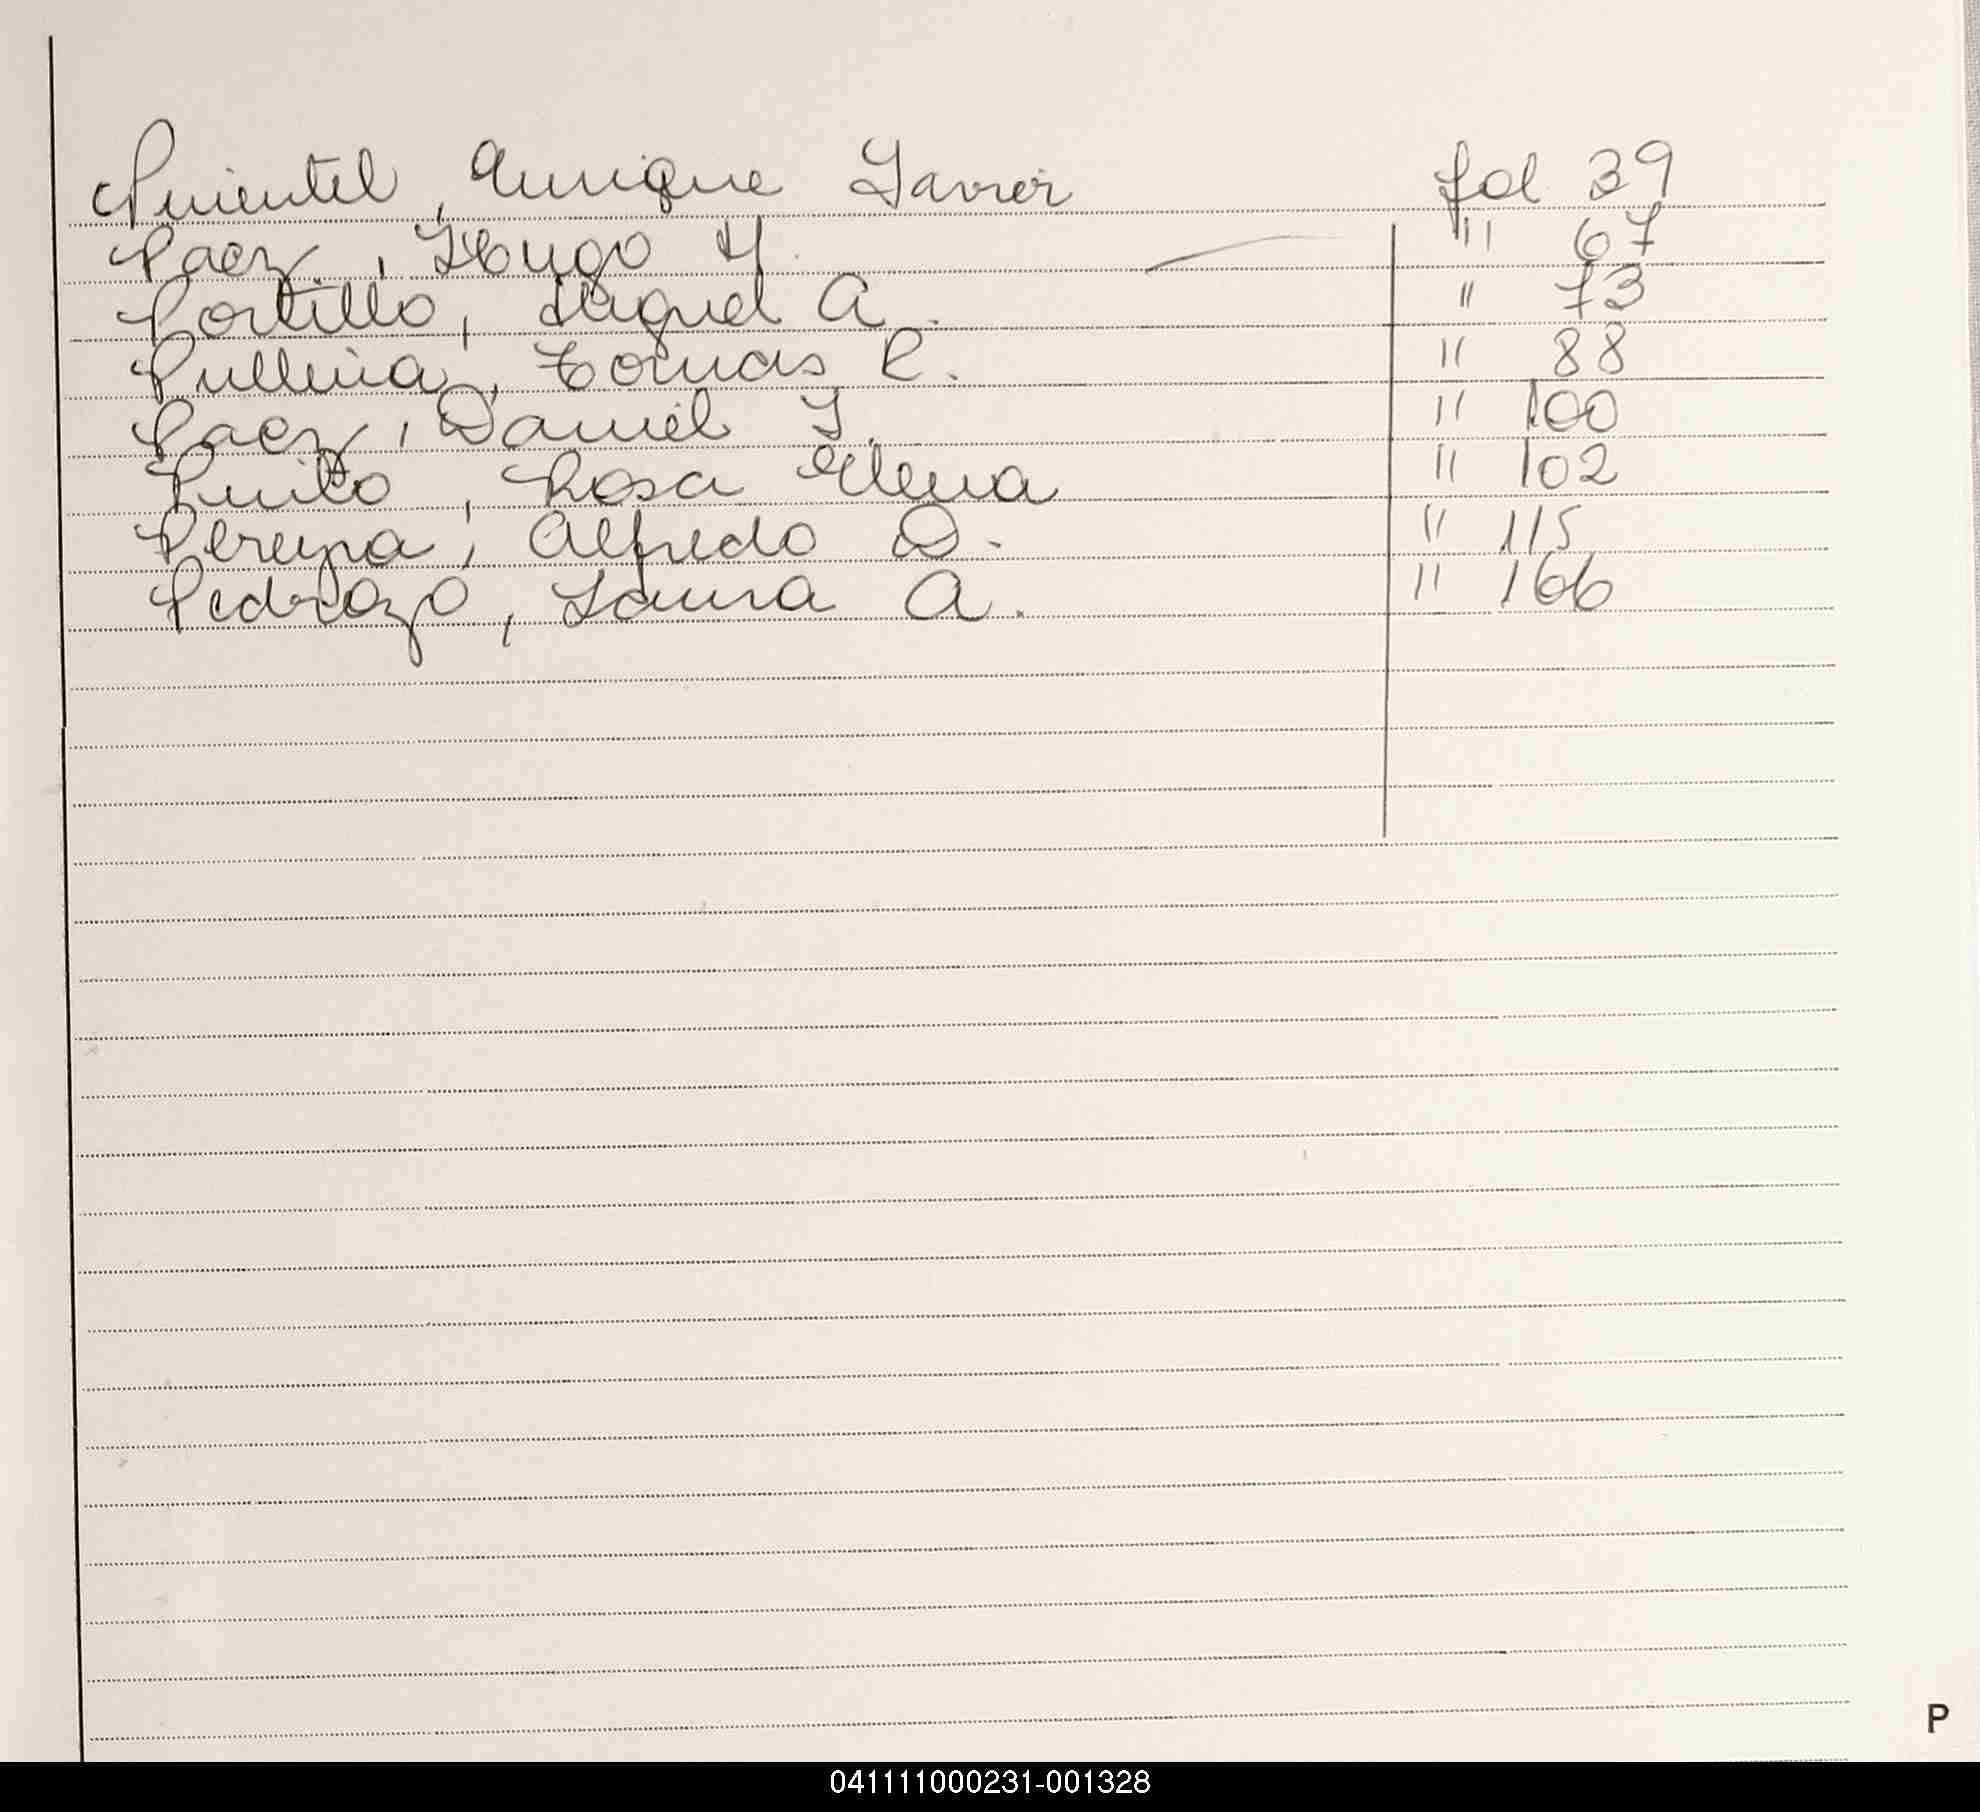 Pimentel, Enrique Javier fol 39
Paez, Hugo H. " 67
Portillo, Miguel A. " 73
Tomas R. " 88
Paez, Daniel J. " 100
Pinto, Rosa Elena " 102
Pereyra, Alfredo D. " 115
Pedrozo, Laura A. " 166
P
041111000231-001328